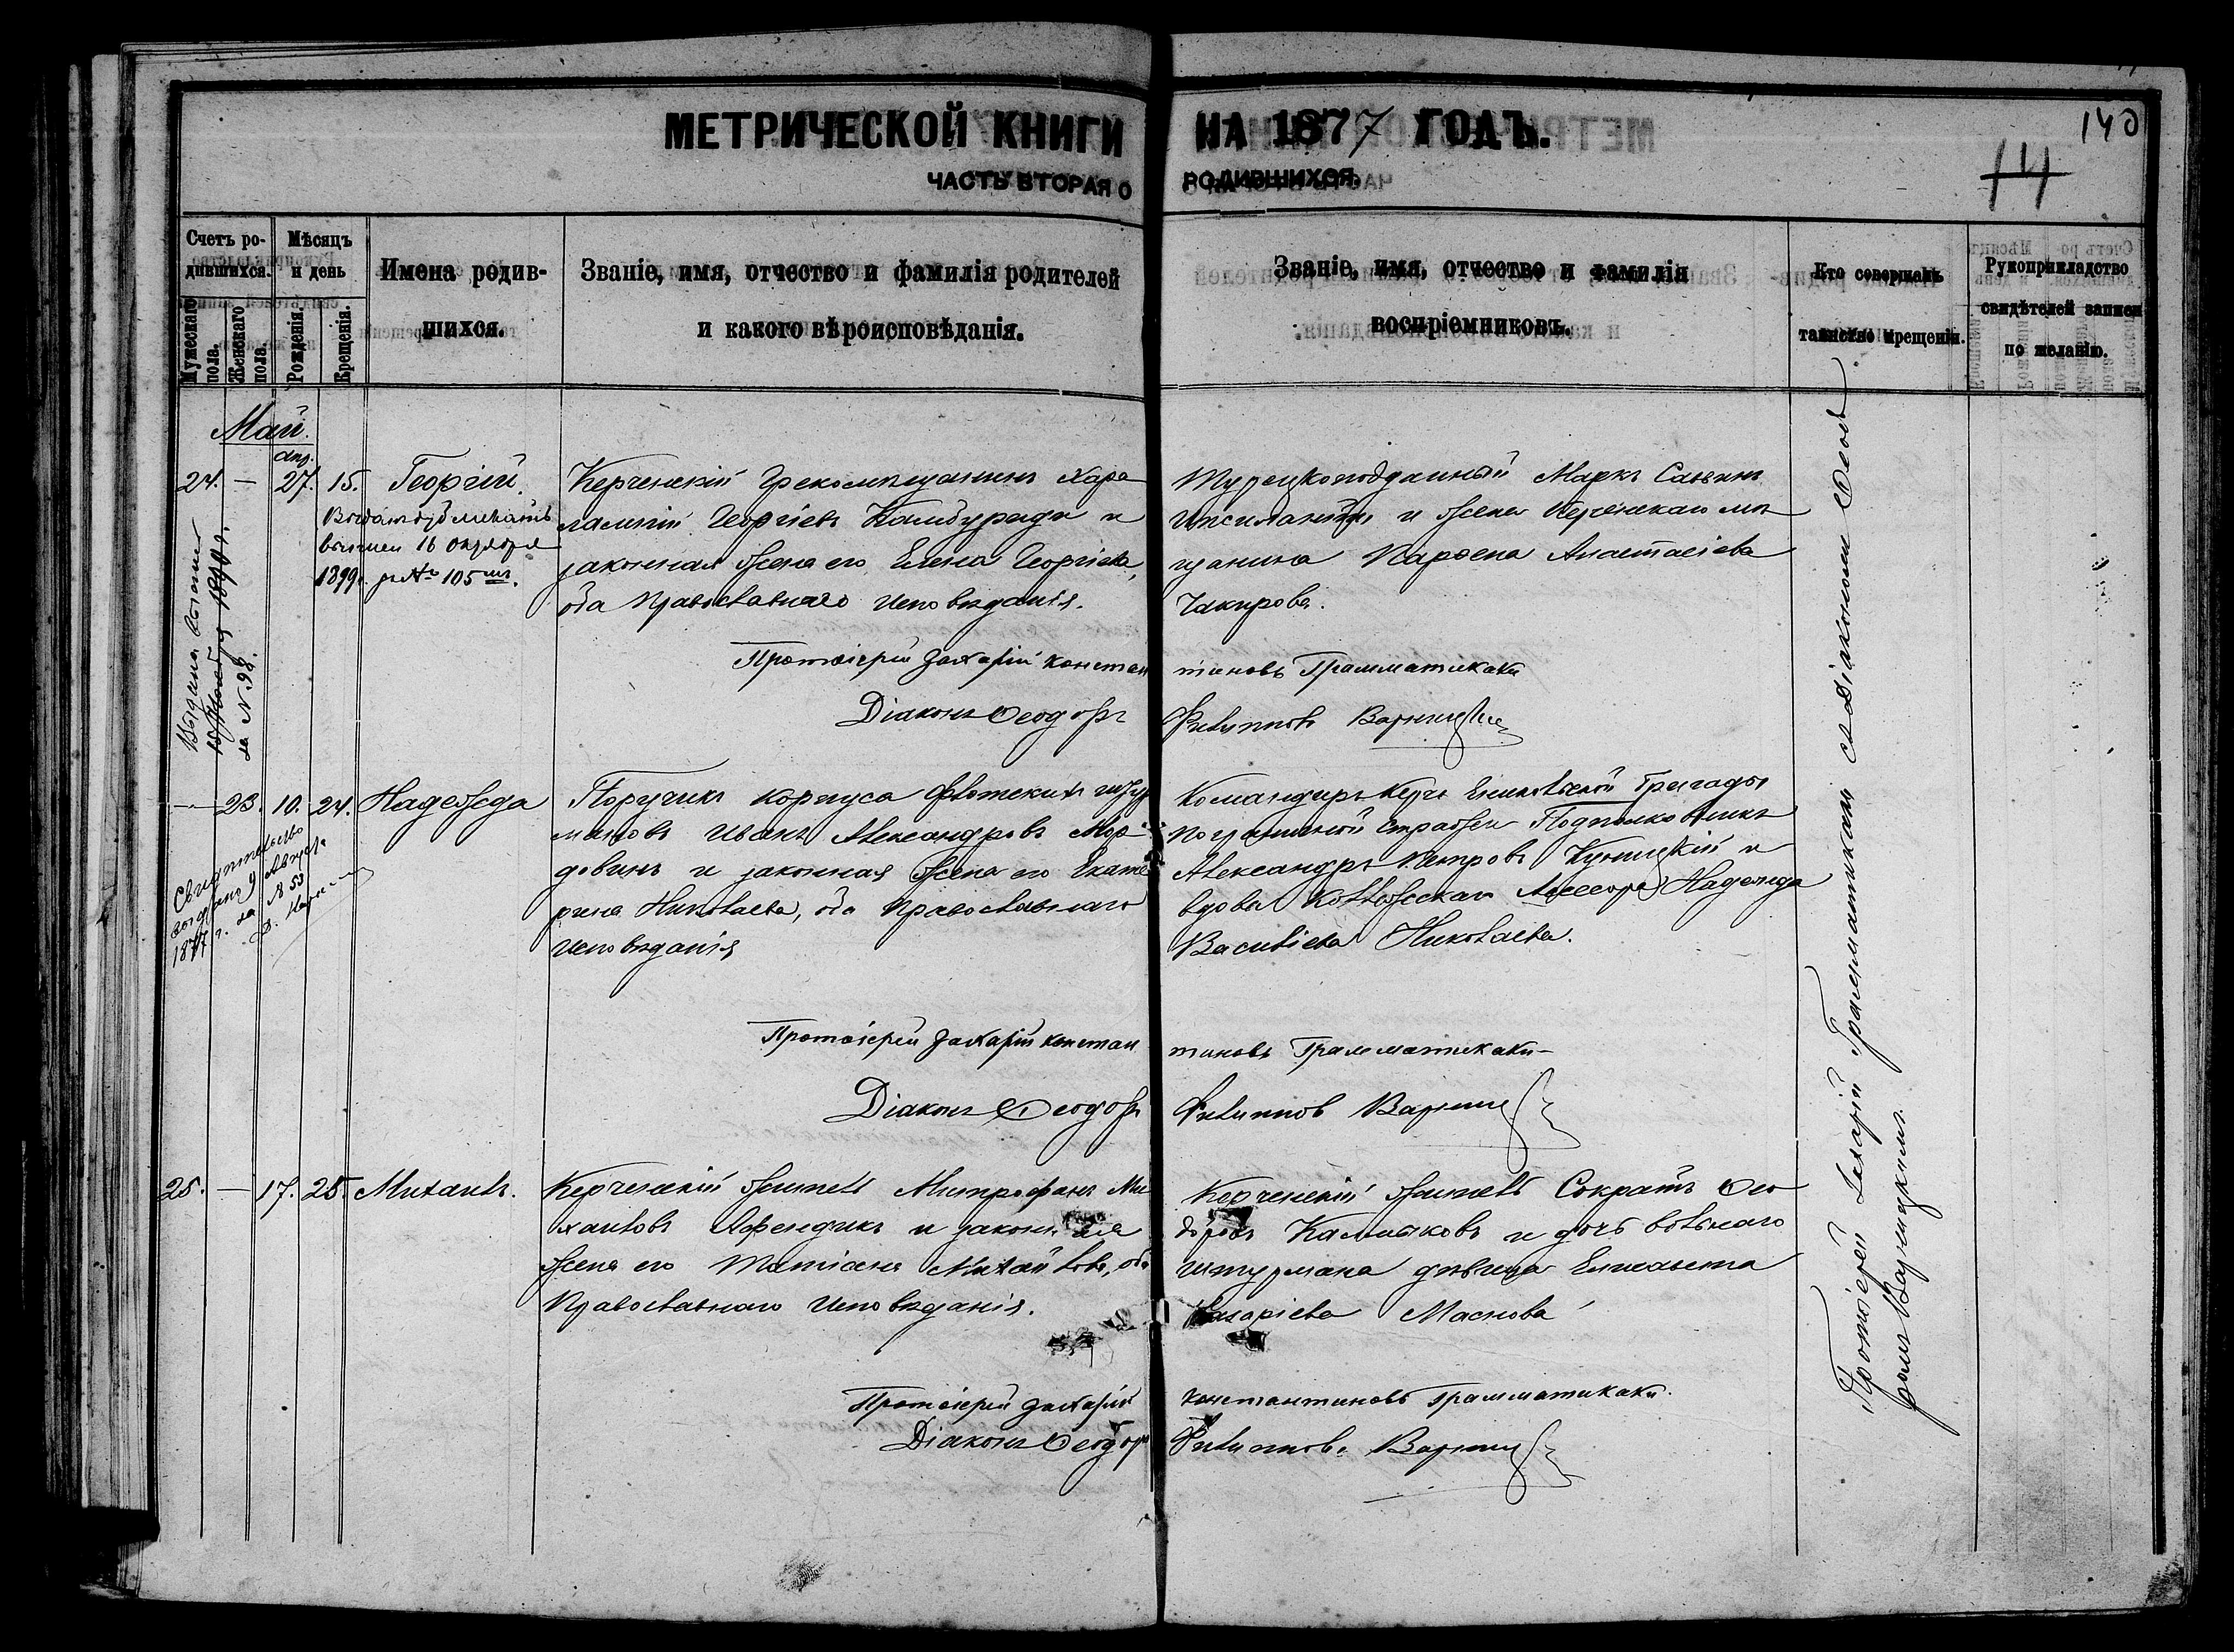 МЕТРИЧЕСКОЙ КНИГИ НА 1877 ГОДЪ.
140
14
ЧАСТЬ ВТОРАЯ О РОДИВШИХСЯ.
Счетъ ро-
дившихся.
Мужескаго пола.
Женскаго пола.
Мѣсяцъ
и день
Рожденія.
Крещенія.
Имена родив-
шихся.
Званіе, имя, отчество и фамилія родителей
и какого вѣроисповѣданія.
Званіе, имя, отчество и фамилія
воспріемниковъ.
Кто совершалъ
таинство крещенія.
Рукоприкладство
свидѣтелей записи
по желанію.
Май.
апр.
24. — 27. 15. Георгій.
выписи 16 Октября
1899 г. за № 105
Выдана выпись
1894 г.
за № 98.
Керченскій Грекомѣщанинъ Хара
лампій Георгіевъ Камбуриди и
законная жена его Елена Георгіева,
оба Православнаго Исповѣданія.
Турецкоподданный Маркъ Саввинъ
Ипсиланти и жена Керченскаго мѣ
щанина Парѳена Анастасіева
Чакирова.
Протоіерей Захарій Константиновъ Грамматикаки
Діаконъ Ѳеодоръ Филипповъ Варницкій
— 23. 10. 24. Надежда
Свидѣтельство
выдано 9 Августа
1877 г. за № 53
Поручикъ корпуса Флотскихъ штур
мановъ Иванъ Александровъ Мор
довинъ и законная жена его Екате
рина Николаева, оба Православнаго
Исповѣданія
Командиръ Керчь Еникольской Бригады
пограничной стражи Подполковникъ
Александръ Петровъ Куницкій и
вдова Коллежскаго Ассесора Надежда
Васильева Николаева.
Протоіерей Захарій Константиновъ Грамматикаки
Діаконъ Ѳеодоръ Филипповъ Варниц
25. — 17. 25. Михаилъ.
Керченскій жителъ Митрофанъ Ми
хаиловъ Афендикъ и законная
жена его Татіана Михайлова, оба
Православнаго Исповѣданія.
Керченскій жителъ Сократъ Ѳео
доровъ Калмыковъ и дочь вольнаго
штурмана дѣвица Елисавета
Назаріева Маснова
Протоіерей Захарій Константиновъ Грамматикаки.
Діаконъ Ѳеодоръ Филипповъ Варниц
Протоіерей Захарій Грамматикаки съ Діакономъ Ѳеодо
ромъ Варницкимъ.